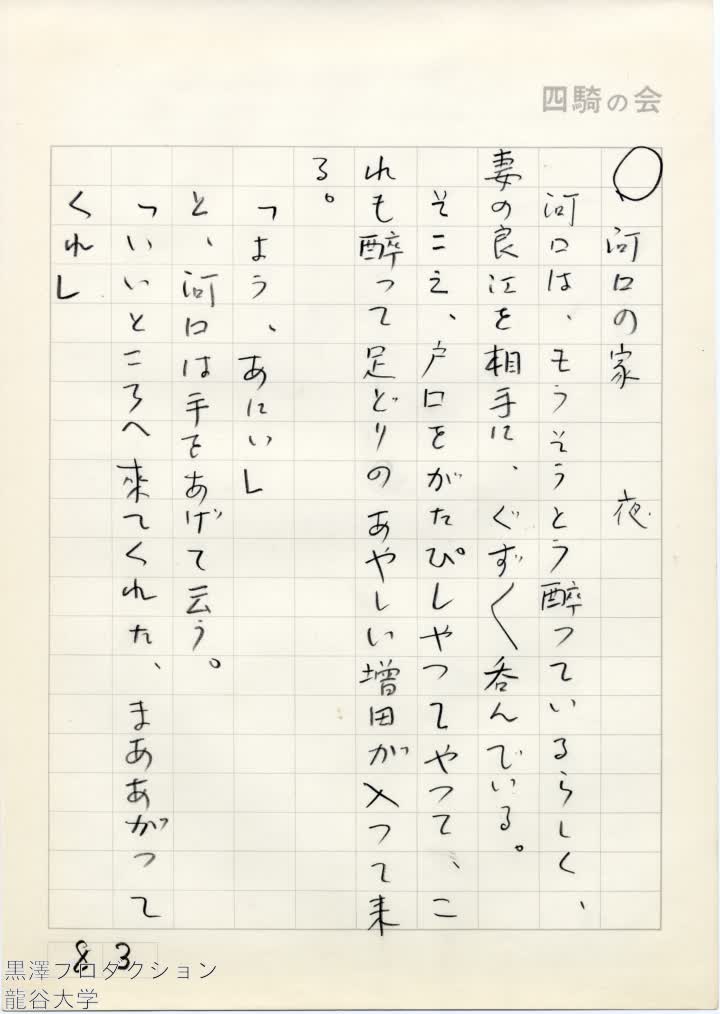 四騎の会
○、河口の家　　夜
河口は、もうそうとう酔っているらしく、
妻の良江を相手に、ぐずぐず呑んでいる。
そこえ、戸口をがたぴしやつてやつて、こ
れも酔って足どりのあやしい増田が入って来
る。
「よう、あにい」
と、河口は手をあげて云う。
「いいところへ来てくれた、まああがって
くれ」
83
黒澤プロダクション
龍谷大学